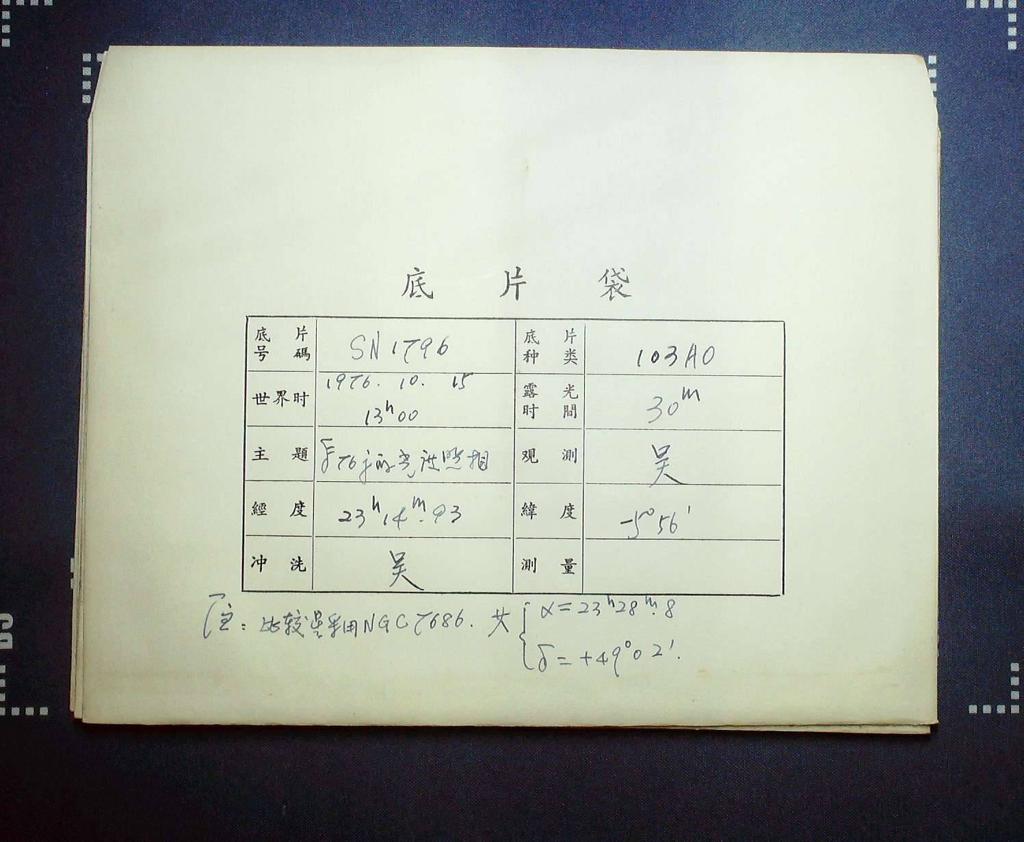 底片袋
底片号碼 SN1796 底片种类 103AO
世界时 1976. 10. 15 13ʰ00 露光时間 30ᵐ
主題 照相 观測 吴
經度 23ʰ14ᵐ.93 緯度 -5°56′
冲洗 吴 測量
注：比较星采用NGC7686. 共 α=23ʰ28ᵐ.8
δ=+49°02′.